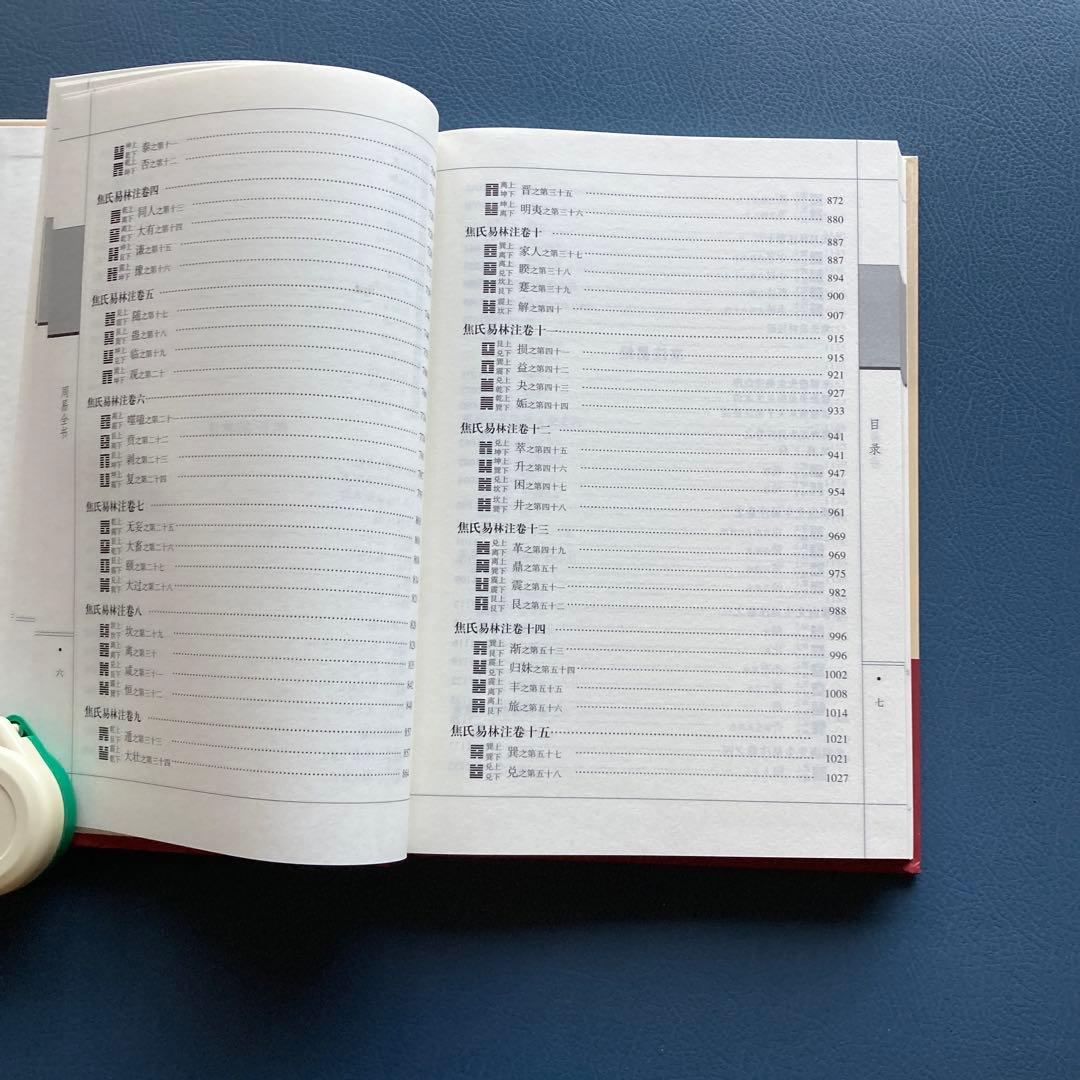 坤上 乾下 泰之第十一
乾上 坤下 否之第十二
焦氏易林注卷四
乾上 离下 同人之第十三
离上 乾下 大有之第十四
坤上 艮下 谦之第十五
震上 坤下 豫之第十六
焦氏易林注卷五
兑上 震下 随之第十七
艮上 巽下 蛊之第十八
坤上 兑下 临之第十九
巽上 坤下 观之第二十
焦氏易林注卷六
离上 震下 噬嗑之第二十一
艮上 离下 贲之第二十二
艮上 坤下 剥之第二十三
坤上 震下 复之第二十四
焦氏易林注卷七
乾上 震下 无妄之第二十五
艮上 乾下 大畜之第二十六
艮上 震下 颐之第二十七
兑上 巽下 大过之第二十八
焦氏易林注卷八
坎上 坎下 坎之第二十九
离上 离下 离之第三十
兑上 艮下 咸之第三十一
震上 巽下 恒之第三十二
焦氏易林注卷九
乾上 艮下 遁之第三十三 857
震上 乾下 大壮之第三十四 864
周易全书
六
离上 坤下 晋之第三十五 872
坤上 离下 明夷之第三十六 880
焦氏易林注卷十 887
巽上 离下 家人之第三十七 887
离上 兑下 睽之第三十八 894
坎上 艮下 蹇之第三十九 900
震上 坎下 解之第四十 907
焦氏易林注卷十一 915
艮上 兑下 损之第四十一 915
巽上 震下 益之第四十二 921
兑上 乾下 夬之第四十三 927
乾上 巽下 姤之第四十四 933
焦氏易林注卷十二 941
兑上 坤下 萃之第四十五 941
坤上 巽下 升之第四十六 947
兑上 坎下 困之第四十七 954
坎上 巽下 井之第四十八 961
焦氏易林注卷十三 969
兑上 离下 革之第四十九 969
离上 巽下 鼎之第五十 975
震上 震下 震之第五十一 982
艮上 艮下 艮之第五十二 988
焦氏易林注卷十四 996
巽上 艮下 渐之第五十三 996
震上 兑下 归妹之第五十四 1002
震上 离下 丰之第五十五 1008
离上 艮下 旅之第五十六 1014
焦氏易林注卷十五 1021
巽上 巽下 巽之第五十七 1021
兑上 兑下 兑之第五十八 1027
目录
七